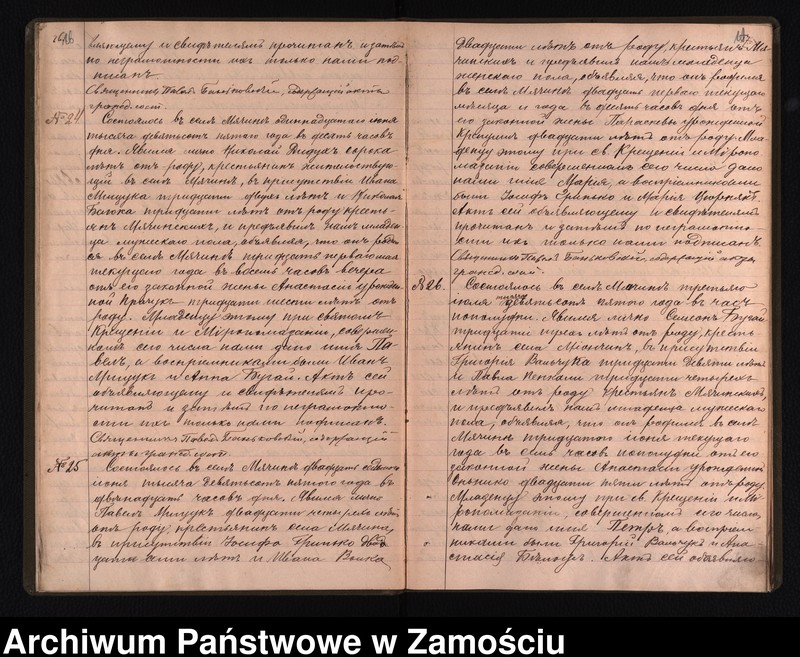 вляющему и свидѣтелямъ прочитанъ и затѣмъ
по неграмотности ихъ только нами под-
писанъ
Священникъ Павелъ Баньковскій, содержащій акты
гражд. сост.
№ 24 Состоялось въ селѣ Мячинѣ одиннадцатаго іюня
тысяча девятьсотъ пятого года въ десять часовъ
дня. Явился лично Николай Дидухъ сорока
лѣтъ отъ роду, крестьянинъ жительствую-
щій въ селѣ Мячинѣ, въ присутствіи Ивана
Мищука тридцати двухъ лѣтъ и Николая
тридцати лѣтъ отъ роду кресть-
янъ Мячинскихъ, и предъявилъ намъ младен-
ца мужескаго пола, объявляя, что онъ родил-
ся въ селѣ Мячинѣ тридцать перваго мая
текущаго года въ восемь часовъ вечера
отъ его законной жены Анастасіи урожден-
ной Кравчукъ тридцати шести лѣтъ отъ
роду. Младенцу этому при святомъ
Крещеніи и Мѵропомазаніи, совершен-
номъ сего числа нами дано имя Па-
велъ, а воспріемниками были Иванъ
Мищукъ и Анна Бугай. Актъ сей
объявляющему и свидѣтелямъ про-
читанъ и затѣмъ по неграмотно-
сти ихъ только нами подписанъ.
Священникъ Павелъ Баньковскій, содержащій
акты гражд. сост.
№ 25 Состоялось въ селѣ Мячинѣ двадцать
іюня тысяча девятьсотъ пятого года въ
двѣнадцать часовъ дня. Явился лично
Павелъ Мищукъ двадцати четырехъ лѣтъ
отъ роду, крестьянинъ села Мячина,
въ присутствіи Іосифа Гринько
лѣтъ и Ивана
двадцати лѣтъ отъ роду, крестьянъ Мя-
чинскихъ и предъявилъ намъ младенца
женскаго пола, объявляя, что онъ родился
въ селѣ Мячинѣ двадцать перваго текущаго
мѣсяца и года въ десять часовъ дня отъ
его законной жены Параскевы урожденной
двадцати лѣтъ отъ роду. Мла-
денцу этому при св. Крещеніи и Мѵропо-
мазаніи совершенномъ сего числа дано
нами имя Марія, а воспріемниками
были Іосифъ Гринько и Марія
Актъ сей объявляющему и свидѣтелямъ
прочитанъ и затѣмъ по неграмотно-
сти ихъ только нами подписанъ.
Священникъ Павелъ Баньковскій, содержащій акты
гражд. сост.
№ 26. Состоялось въ селѣ Мячинѣ третьяго
іюля тысяча девятьсотъ пятого года въ часъ
пополудни. Явился лично Семенъ Бугай
тридцати трехъ лѣтъ отъ роду, кресть-
янинъ села Мячина, въ присутствіи
Григорія Вальчука тридцати девяти лѣтъ
и Павла тридцати четырехъ
лѣтъ отъ роду крестьянъ Мячинскихъ,
и предъявилъ намъ младенца мужескаго
пола, объявляя, что онъ родился въ селѣ
Мячинѣ тридцатаго іюня текущаго
года въ семь часовъ пополудни отъ его
законной жены Анастасіи урожденной
двадцати пяти лѣтъ отъ роду.
Младенцу этому при св. Крещеніи и Мѵ-
ропомазаніи, совершенномъ сего числа,
нами дано имя Петръ, а воспріем-
никами были Григорій Вальчукъ и Ана-
стасія Актъ сей объявляю-
Archiwum Państwowe w Zamościu